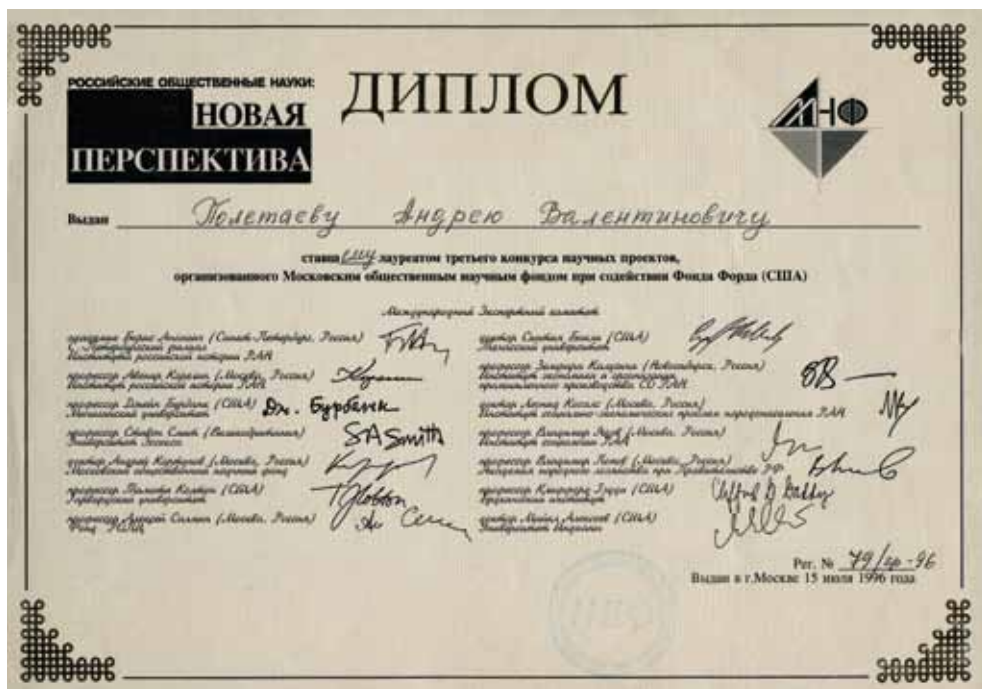 РОССИЙСКИЕ ОБЩЕСТВЕННЫЕ НАУКИ:
НОВАЯ
ПЕРСПЕКТИВА
ДИПЛОМ
МНФ
Выдан Полетаеву Андрею Валентиновичу
ставшему лауреатом третьего конкурса научных проектов,
организованного Московским общественным научным фондом при содействии Фонда Форда (США)
Международный Экспертный комитет
академик Борис Ананьич (Санкт-Петербург, Россия)
С.-Петербургский филиал
Института российской истории РАН
профессор (Москва, Россия)
Институт российской истории РАН
профессор Джейн Бурбанк (США)
Мичиганский университет
Дж. Бурбанк
профессор Стивен Смит (Великобритания)
Университет Эссекса
SA Smith
доктор Андрей Кортунов (Москва, Россия)
Московский общественный научный фонд
профессор Тимоти Колтон (США)
Гарвардский университет
профессор Алексей Салмин (Москва, Россия)
доктор (США)
университет
профессор Земфира Калугина (Новосибирск, Россия)
Институт экономики и организации
промышленного производства СО РАН
доктор (Москва, Россия)
Институт социально-экономических проблем народонаселения РАН
профессор Владимир Ядов (Москва, Россия)
Институт социологии РАН
профессор Владимир Попов (Москва, Россия)
Академия народного хозяйства при Правительстве РФ
профессор Клиффорд Гэдди (США)
Брукингский институт
Clifford G Gaddy
доктор Майкл Алексеев (США)
Университет Индианы
Рег. № 79/гр-96
Выдан в г.Москве 15 июля 1996 года